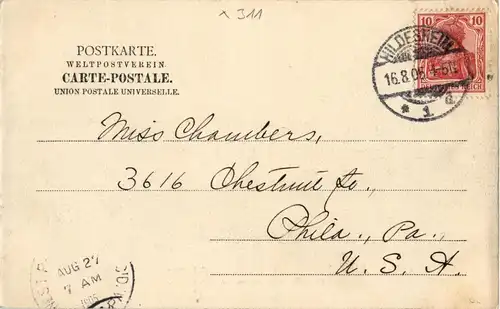 x 311
POSTKARTE.
WELTPOSTVEREIN
CARTE-POSTALE.
UNION POSTALE UNIVERSELLE.
10 10
HILDESHEIM
16.8.05
* 1 d
Miss Chambers,
3616 Chestnut St.,
Phila., Pa.,
U. S. A.
AUG 27
7 AM
1905